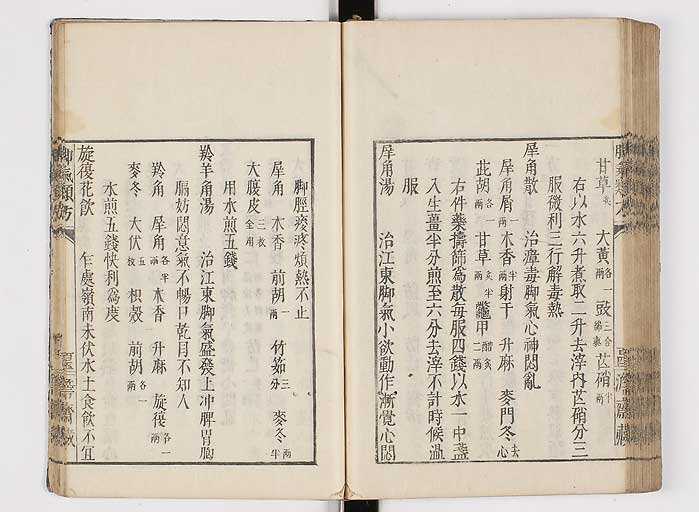 甘草炙 大黃各一兩 豉三合綿裹 芒硝半兩
右以水六升煮取二升去滓內芒硝分三
服微利三行解毒熱
犀角散 治瘴毒脚氣心神悶亂
犀角屑一兩 木香半兩 射干 升麻 麥門冬去心
茈胡各一兩 甘草炙半兩 鼈甲醋炙二兩
右件藥擣篩為散每服四錢以水一中盞
入生薑半分煎至六分去滓不計時候溫
服
犀角湯 治江東脚氣小欲動作漸覺心悶
脚脛痠疼煩熱不止
犀角 木香 前胡一兩 竹茹三分 麥冬兩半
大腹皮三枚全用
用水煎五錢
羚羊角湯 治江東脚氣盛發上冲脾胃胸
膈妨悶意氣不暢口乾目不知人
羚角 犀角各半 木香 升麻 旋覆各一兩
麥冬 大伏五枚 枳殼 前胡各一兩
水煎五錢快利為度
旋覆花飲 乍處嶺南未伏水土食飲不宜
脚氣類方